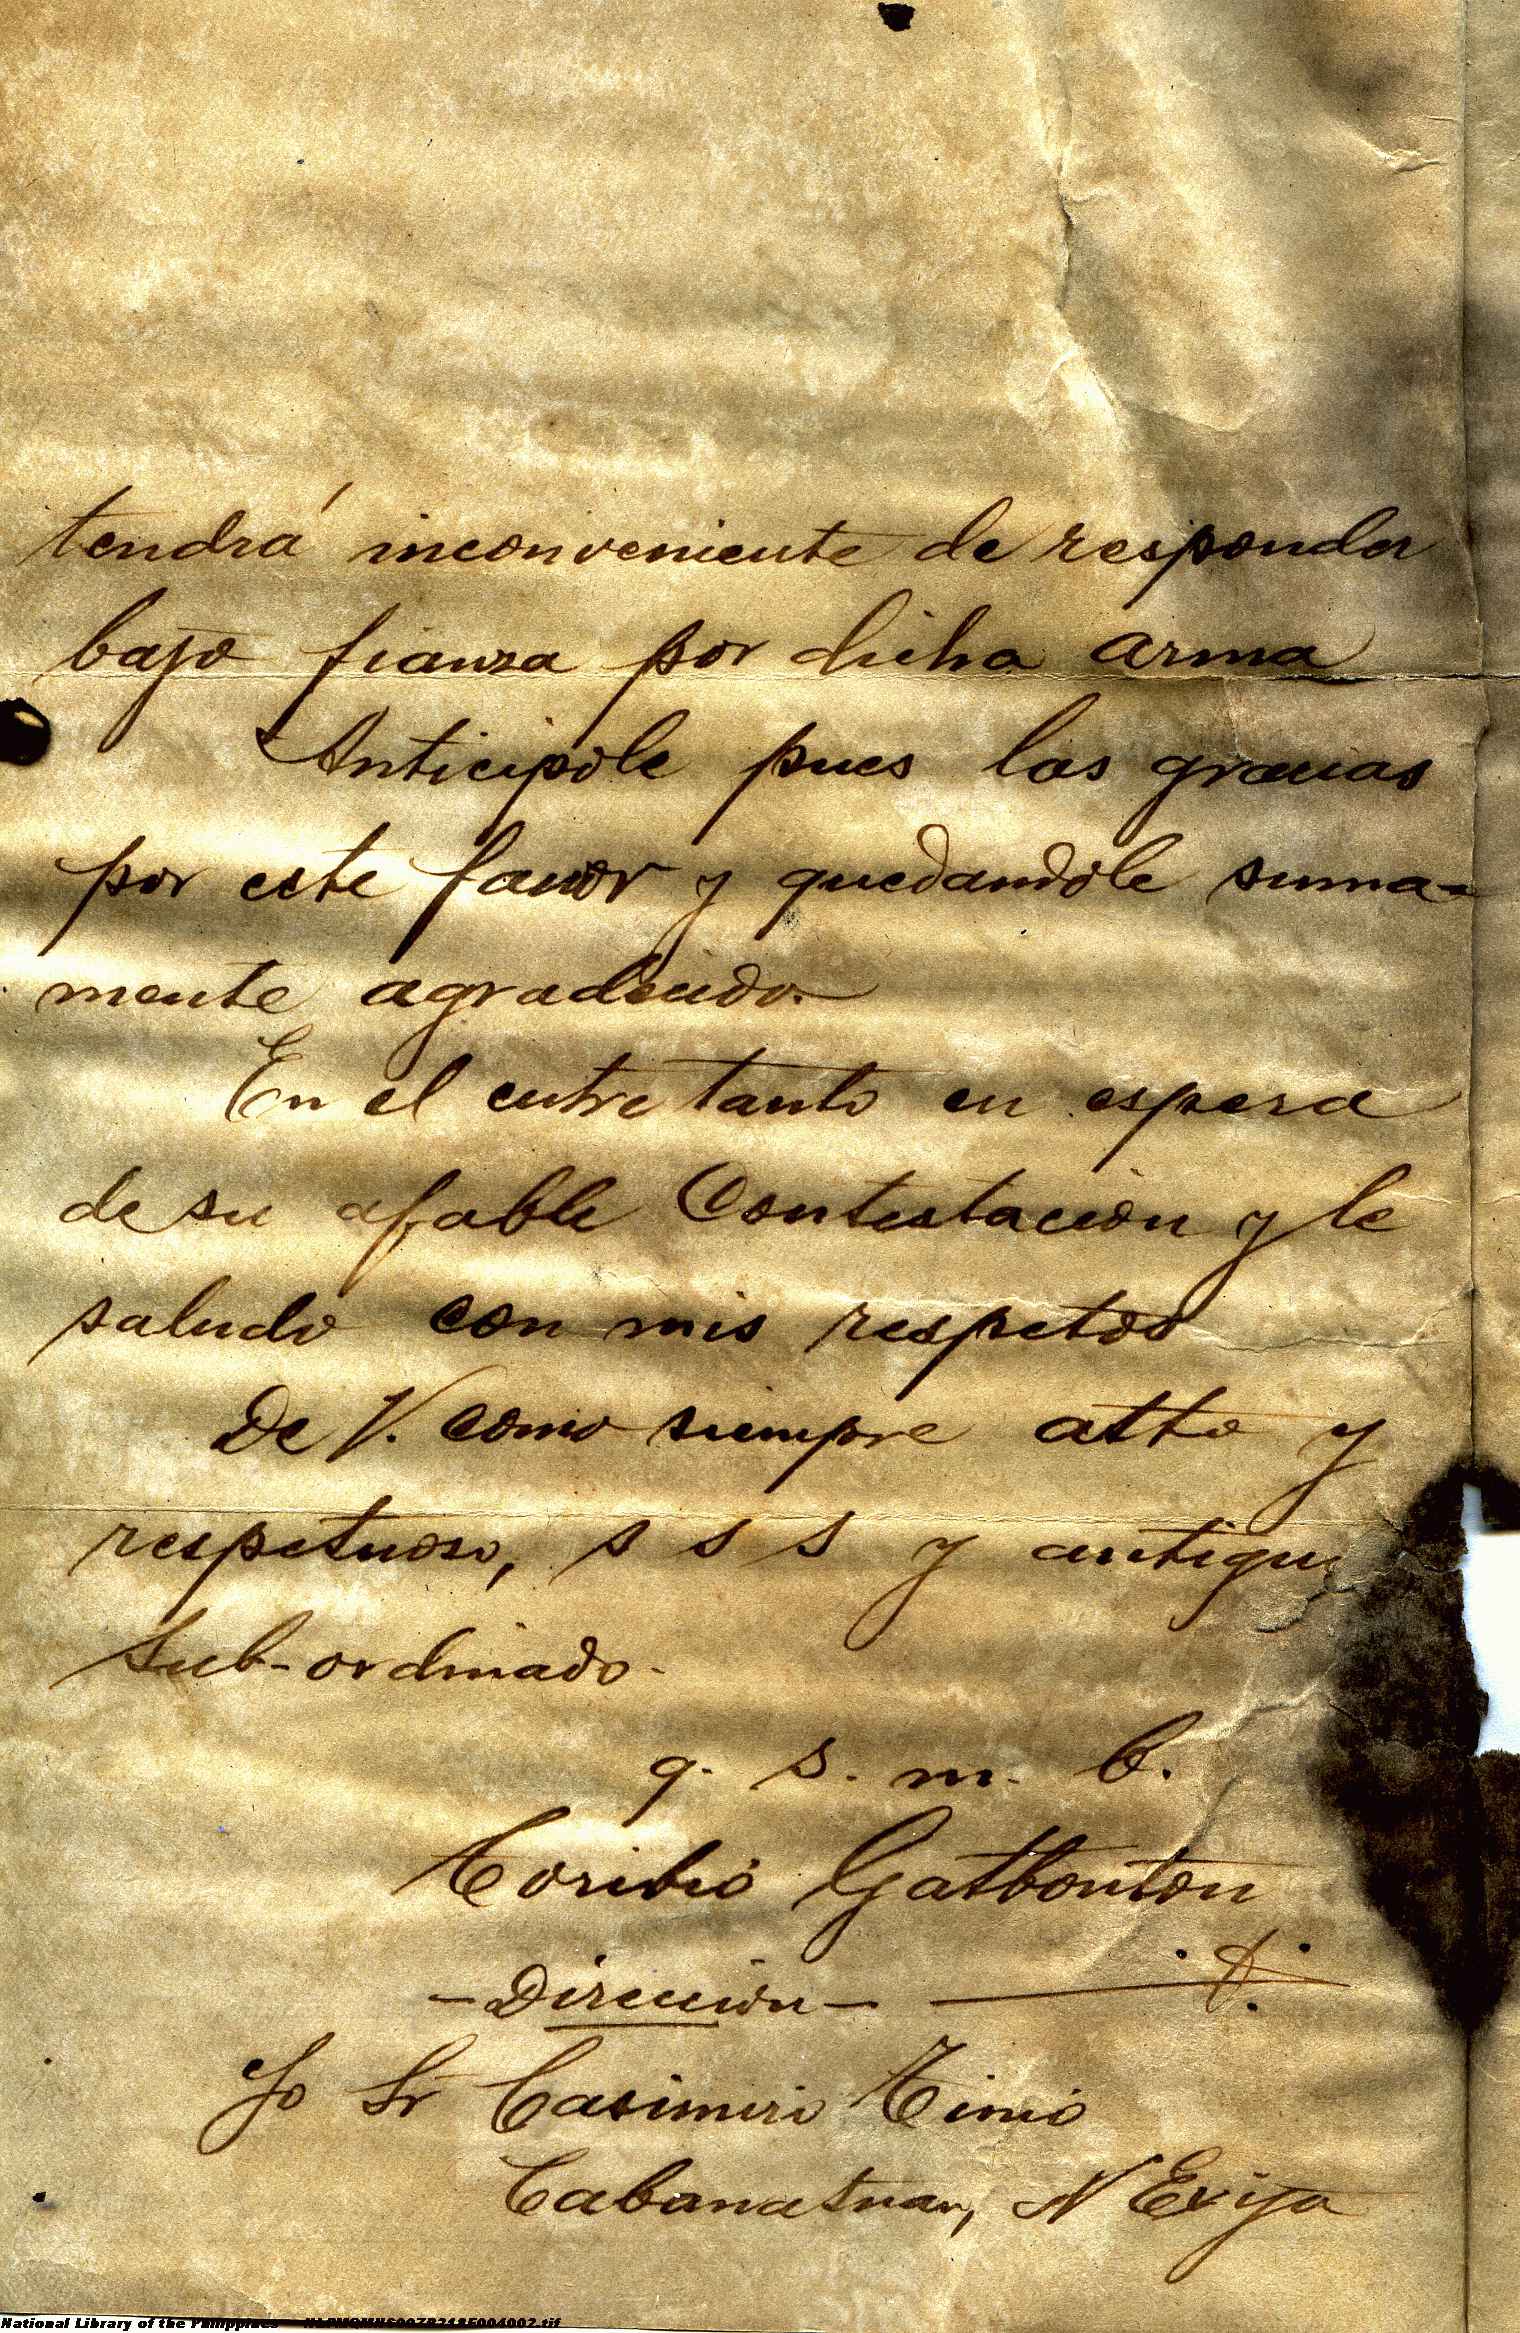 tendrá inconveniente de responder
bajo fianza por dicha arma
Anticipole pues las gracias
por este favor y quedandole suma-
mente agradecido.
En el entretanto en espera
de su afable Contestacion y le
saludo con mis respetos
De V. como siempre atto y
respetuoso, s s s y antiguo
Sub-ordinado.
q. s. m. b.
Toribio Gatbonton
- Direccion -
Sr Casimiro Tinio
Cabanatuan, N Exija
National Library of the Philippines